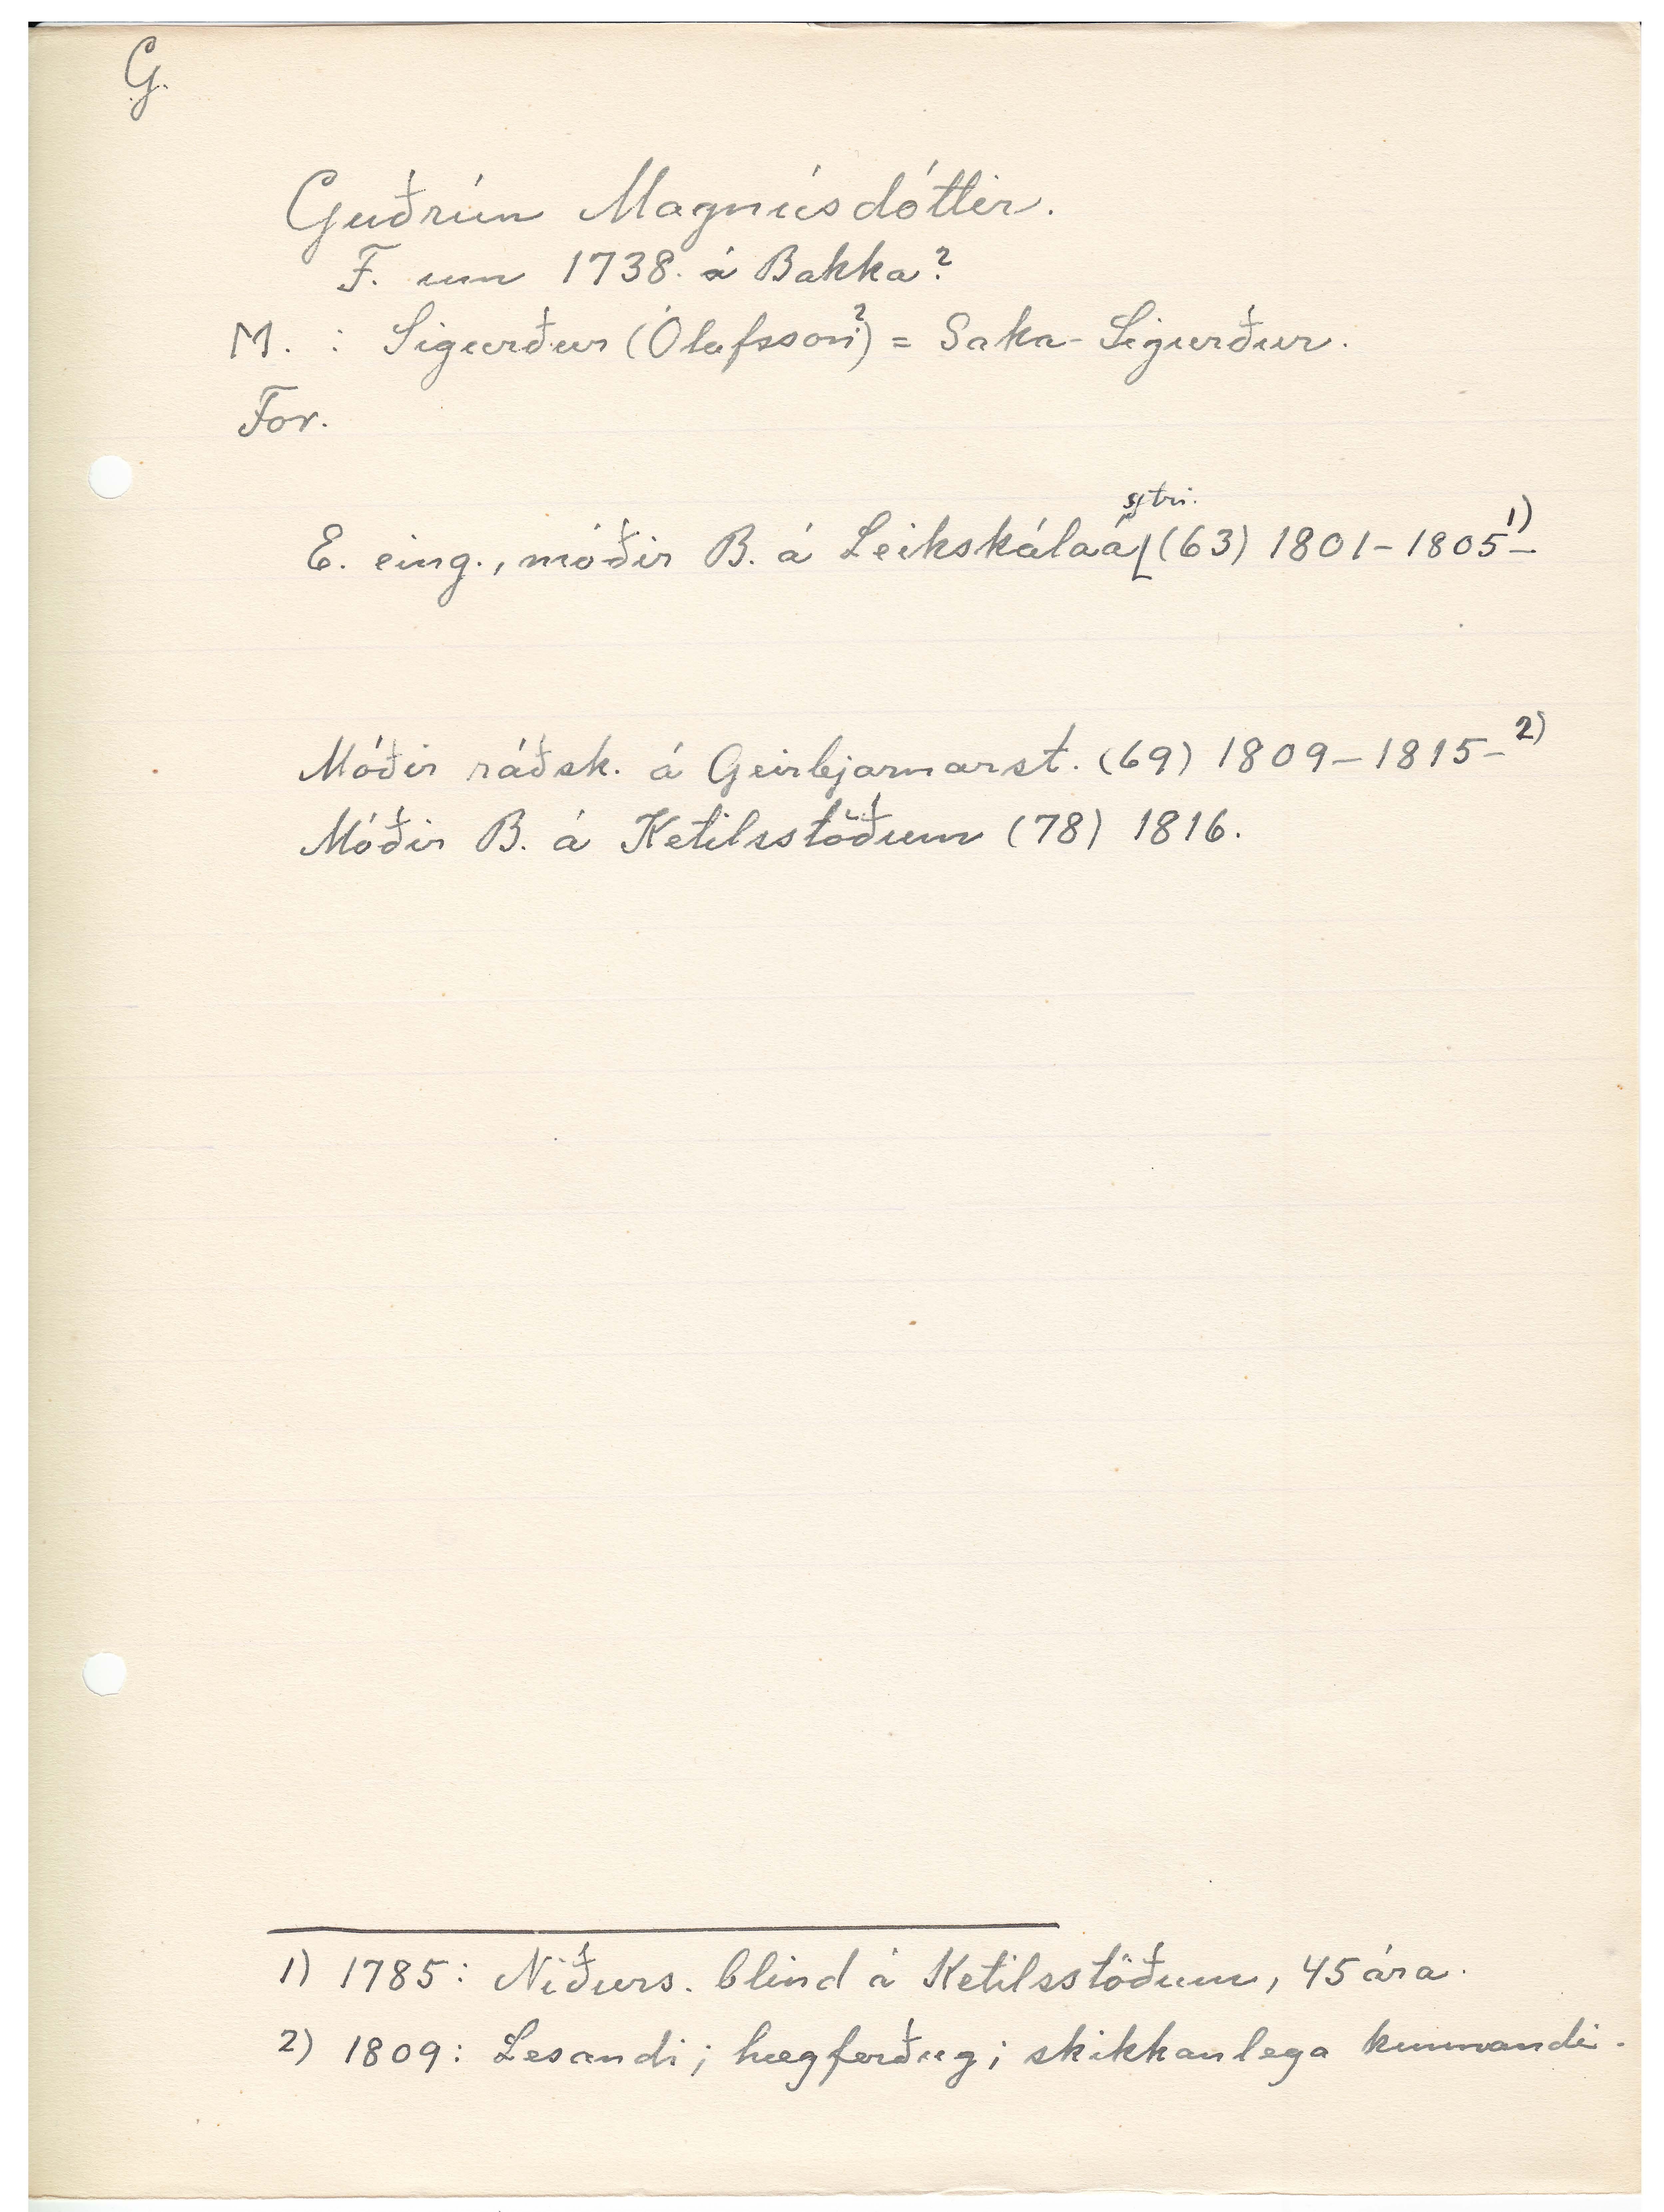 G.
Guðrún Magnúsdóttir.
F. um 1738 á Bakka?
M. : Sigurður (Ólafsson?) = Saka-Sigurður.
For.
E. eing., móðir B. á Leikskálaá sytri. (63) 1801-1805- 1)
Móðir ráðsk. á Geirbjarnarst. (69) 1809-1815- 2)
Móðir B. á Ketilsstöðum (78) 1816.
1) 1785: Niðurs. blind á Ketilsstöðum, 45 ára.
2) 1809: Lesandi; hægferðug; skikkanlega kunnandi.